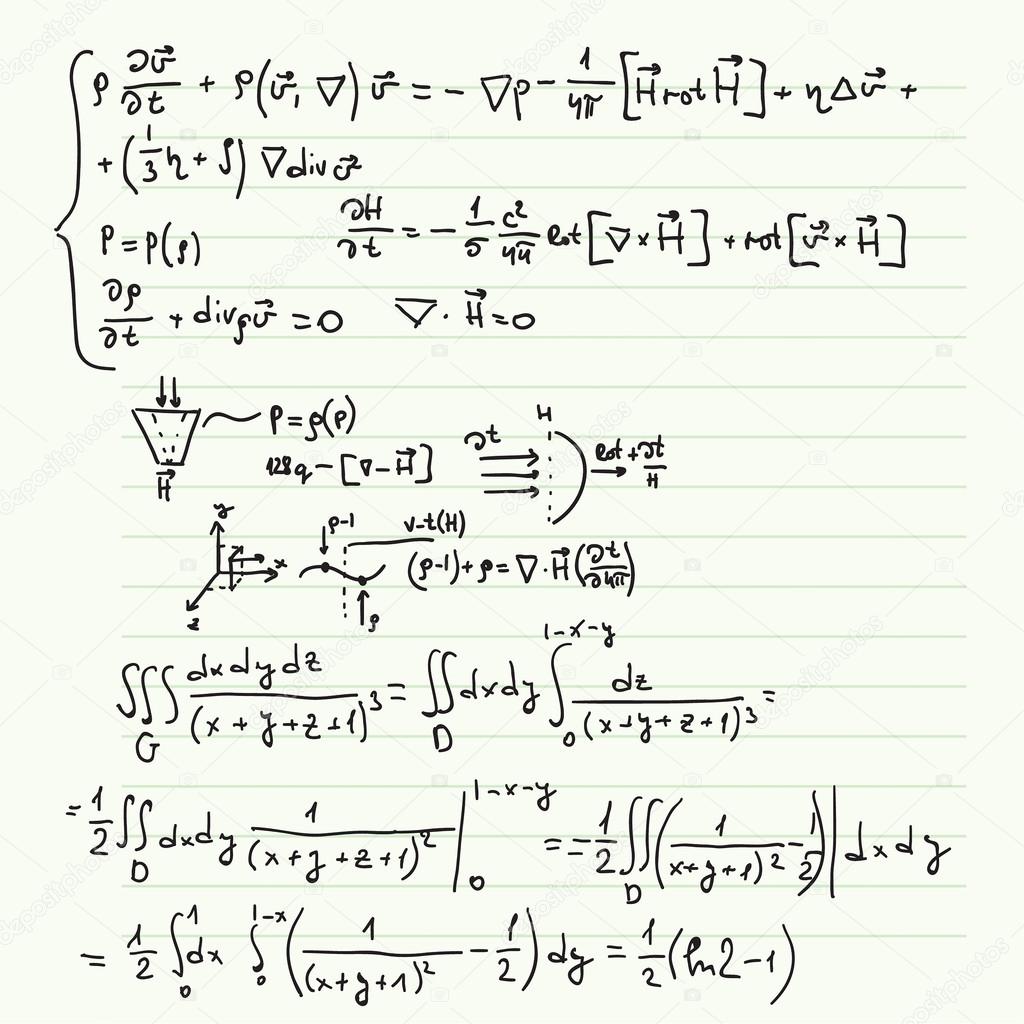 ρ ∂v⃗/∂t + ρ(v⃗, ∇) v⃗ = - ∇p - 1/4π [H⃗ rot H⃗] + η Δ v⃗ +
+ (1/3 η + ʃ) ∇ div v⃗
P = P(ρ) ∂H/∂t = - 1/σ c²/4π Rot [∇ × H⃗] + rot [v⃗ × H⃗]
∂ρ/∂t + div ρv⃗ = 0 ∇ · H⃗ = 0
P = ρ(p)
128q - [∇ - H⃗]
H⃗
∂t
H
Rot + ∂t/H
y
x
z
ρ-1
v-t(H)
ρ
(ρ-1) + ρ = ∇ · H⃗ (∂t/∂4π)
∭G dxdydz/(x + y + z + 1)³ = ∬D dxdy ∫₀^(1-x-y) dz/(x + y + z + 1)³ =
= 1/2 ∬D dxdy 1/(x + y + z + 1)² |₀^(1-x-y) = - 1/2 ∬D (1/(x+y+1)² - 1/2)| dxdy
= 1/2 ∫₀^1 dx ∫₀^(1-x) (1/(x+y+1)² - 1/2) dy = 1/2 (ln2 - 1)